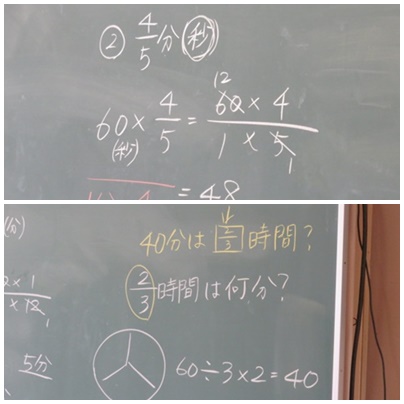 ② 4/5 分 (秒)
12
60 × 4/5 = 60 × 4 / 1 × 5
(秒) 1
= 48
(分)
40分は 2/3 時間?
2/3 時間は何分?
2 × 1
× 12
1
5分
60 ÷ 3 × 2 = 40